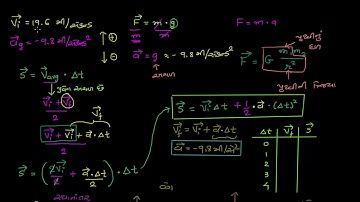 V⃗i = 19.6 મી/સેકન્ડ
a⃗g = -9.8 મી/સેકન્ડ²
↑ +
↓ -
F⃗/m = m·g⃗/m
F = m·a
a⃗ = g⃗ = -9.8 મી/સેકન્ડ²
F⃗ = G m₁m₂/r²
પૃથ્વીની ત્રિજ્યા
S⃗ = V⃗avg · Δt
V⃗i + V⃗f / 2
V⃗f
V⃗i + V⃗i + a⃗·Δt / 2
S⃗ = (2V⃗i/2 + a⃗·Δt/2) · Δt
S⃗ = V⃗i Δt + 1/2 · a⃗ · (Δt)²
V⃗f = V⃗i + a⃗·Δt
a⃗ = -9.8 મી/સે²
Δt V⃗f S⃗
0
1
2
3
4